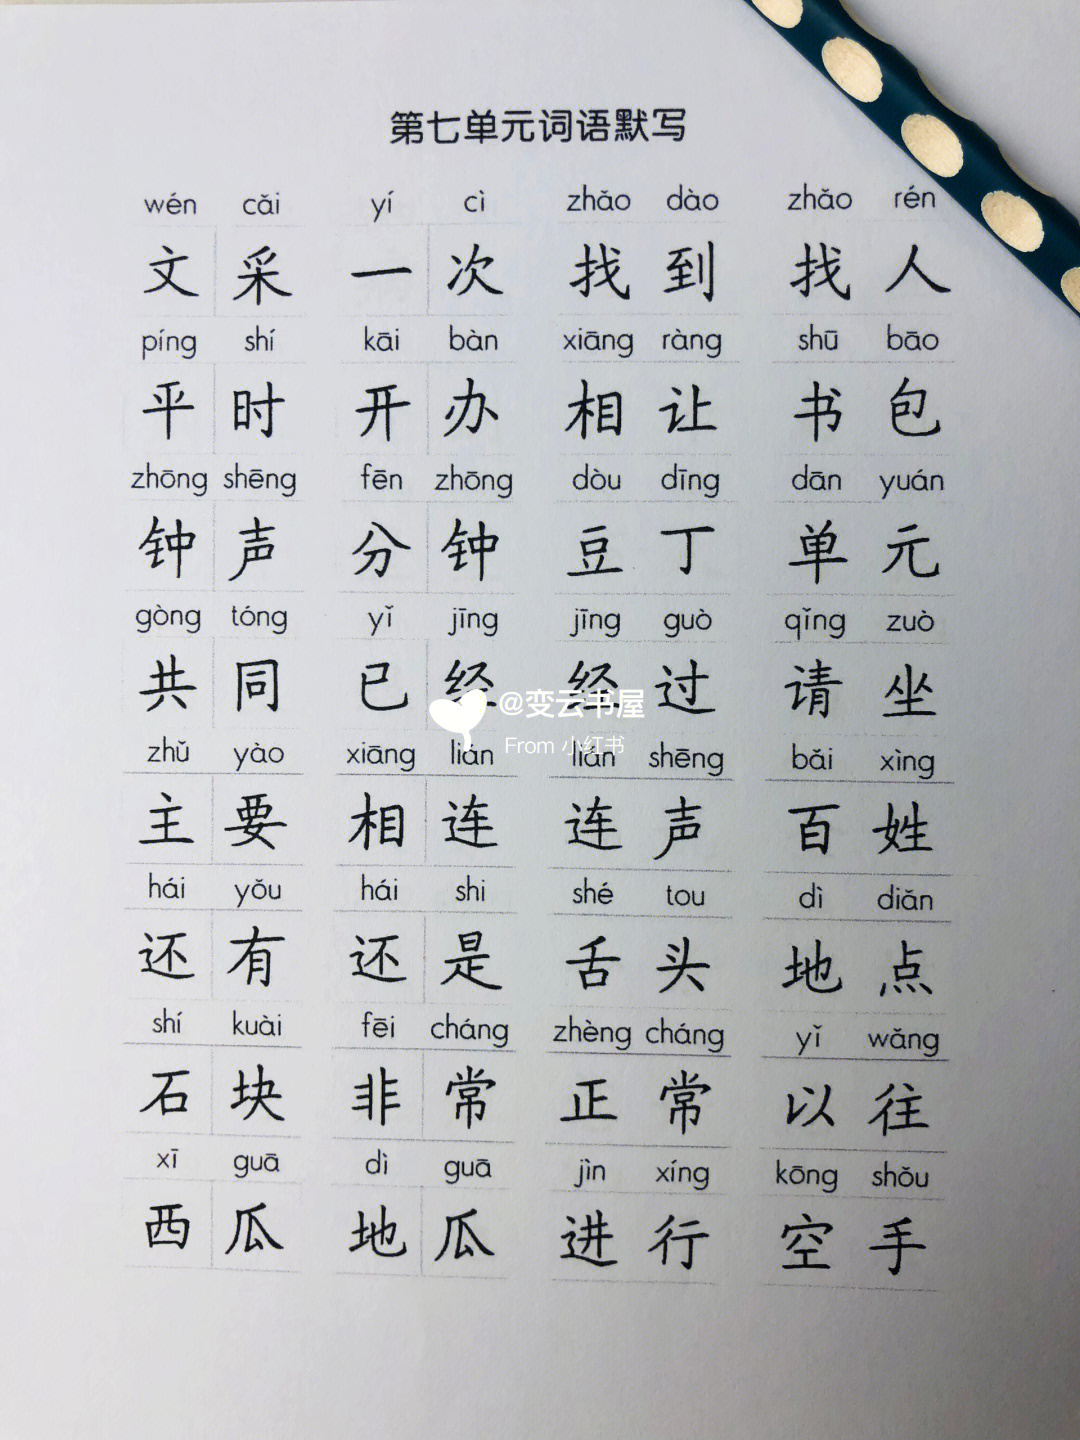 第七单元词语默写
wén cǎi yí cì zhǎo dào zhǎo rén
文采 一次 找到 找人
píng shí kāi bàn xiāng ràng shū bāo
平时 开办 相让 书包
zhōng shēng fēn zhōng dòu dīng dān yuán
钟声 分钟 豆丁 单元
gòng tóng yǐ jīng jīng guò qǐng zuò
共同 已经 经过 请坐
@变云书屋
From 小红书
zhǔ yào xiāng lián lián shēng bǎi xìng
主要 相连 连声 百姓
hái yǒu hái shi shé tou dì diǎn
还有 还是 舌头 地点
shí kuài fēi cháng zhèng cháng yǐ wǎng
石块 非常 正常 以往
xī guā dì guā jìn xíng kōng shǒu
西瓜 地瓜 进行 空手